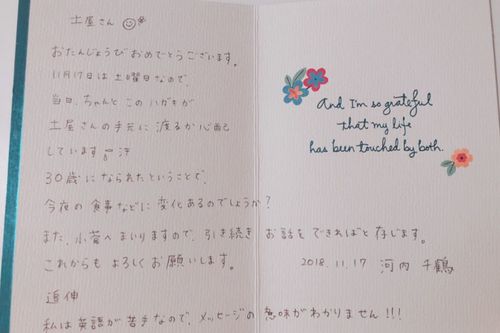 土屋さん
おたんじょうび おめでとうございます。
11月17日は 土曜日なので、
当日、ちゃんと この ハガキが
土屋さんの 手元に 渡るか 心配
しています 汗
30歳に なられたということで、
今夜の 食事などに 変化 あるのでしょうか?
また、小菅へ まいりますので、引き続き お話を できればと 存じます。
これからも よろしく お願いします。
2018.11.17 河内 千鶴
追伸
私は 英語が 苦手なので、メッセージの 意味が わかりません!!!
And I'm so grateful
that my life
has been touched by both.